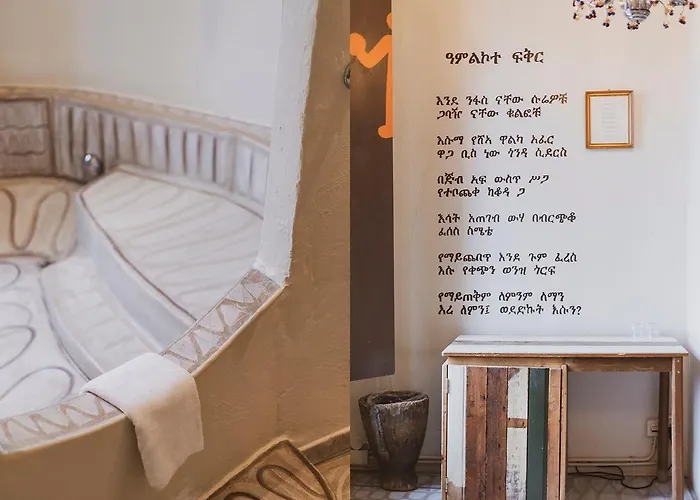 ዓምልኮተ ፍቅር
እንደ ንፋስ ናቸው ሱሪዎቹ
ጋባዥ ናቸው ቁልፎቹ
እሱማ የሸአ ዋልካ አፈር
ዋጋ ቢስ ነው ጎንዳ ሲደርስ
በጅብ አፍ ውስጥ ሥጋ
የተቦጨቀ ከቆዳ ጋ
እሳት አጠገብ ውሃ በብርጭቆ
ፈሰስ ስሜቴ
የማይጨበጥ እንደ ጉም ፈረስ
እሱ የቀጭን ወንዝ ጎርፍ
የማይጠቅም ለምንም ለማን
እረ ለምን፤ ወደድኩት እሱን?